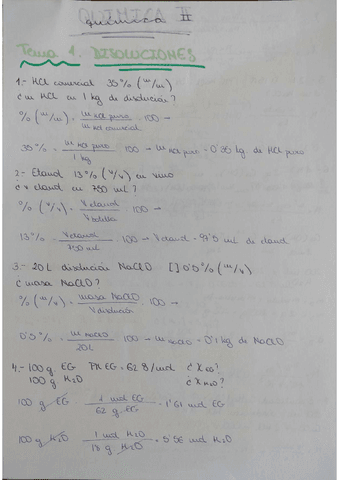 QUÍMICA II
química
Tema 1. DISOLUCIONES
1.- HCl comercial 35% (m/m)
¿m HCl en 1 kg de disolución?
% (m/m) = m HCl puro / m HCl comercial · 100 →
35% = m HCl puro / 1 kg · 100 → m HCl puro = 0'35 kg de HCl puro
2.- Etanol 13% (v/v) en vino
¿v etanol en 750 mL?
% (v/v) = V etanol / V botella · 100 →
13% = V etanol / 750 mL · 100 → V etanol = 97'5 mL de etanol
3.- 20L disolución NaClO [] 0'5% (m/v)
¿masa NaClO?
% (m/v) = masa NaClO / V disolución · 100 →
0'5% = m NaClO / 20L · 100 → m NaClO = 0'1 kg de NaClO
4.- 100 g EG PM EG = 62 g/mol ¿X EG?
100 g H2O ¿X H2O?
100 g EG · 1 mol EG / 62 g EG = 1'61 mol EG
100 g H2O · 1 mol H2O / 18 g H2O = 5'56 mol H2O